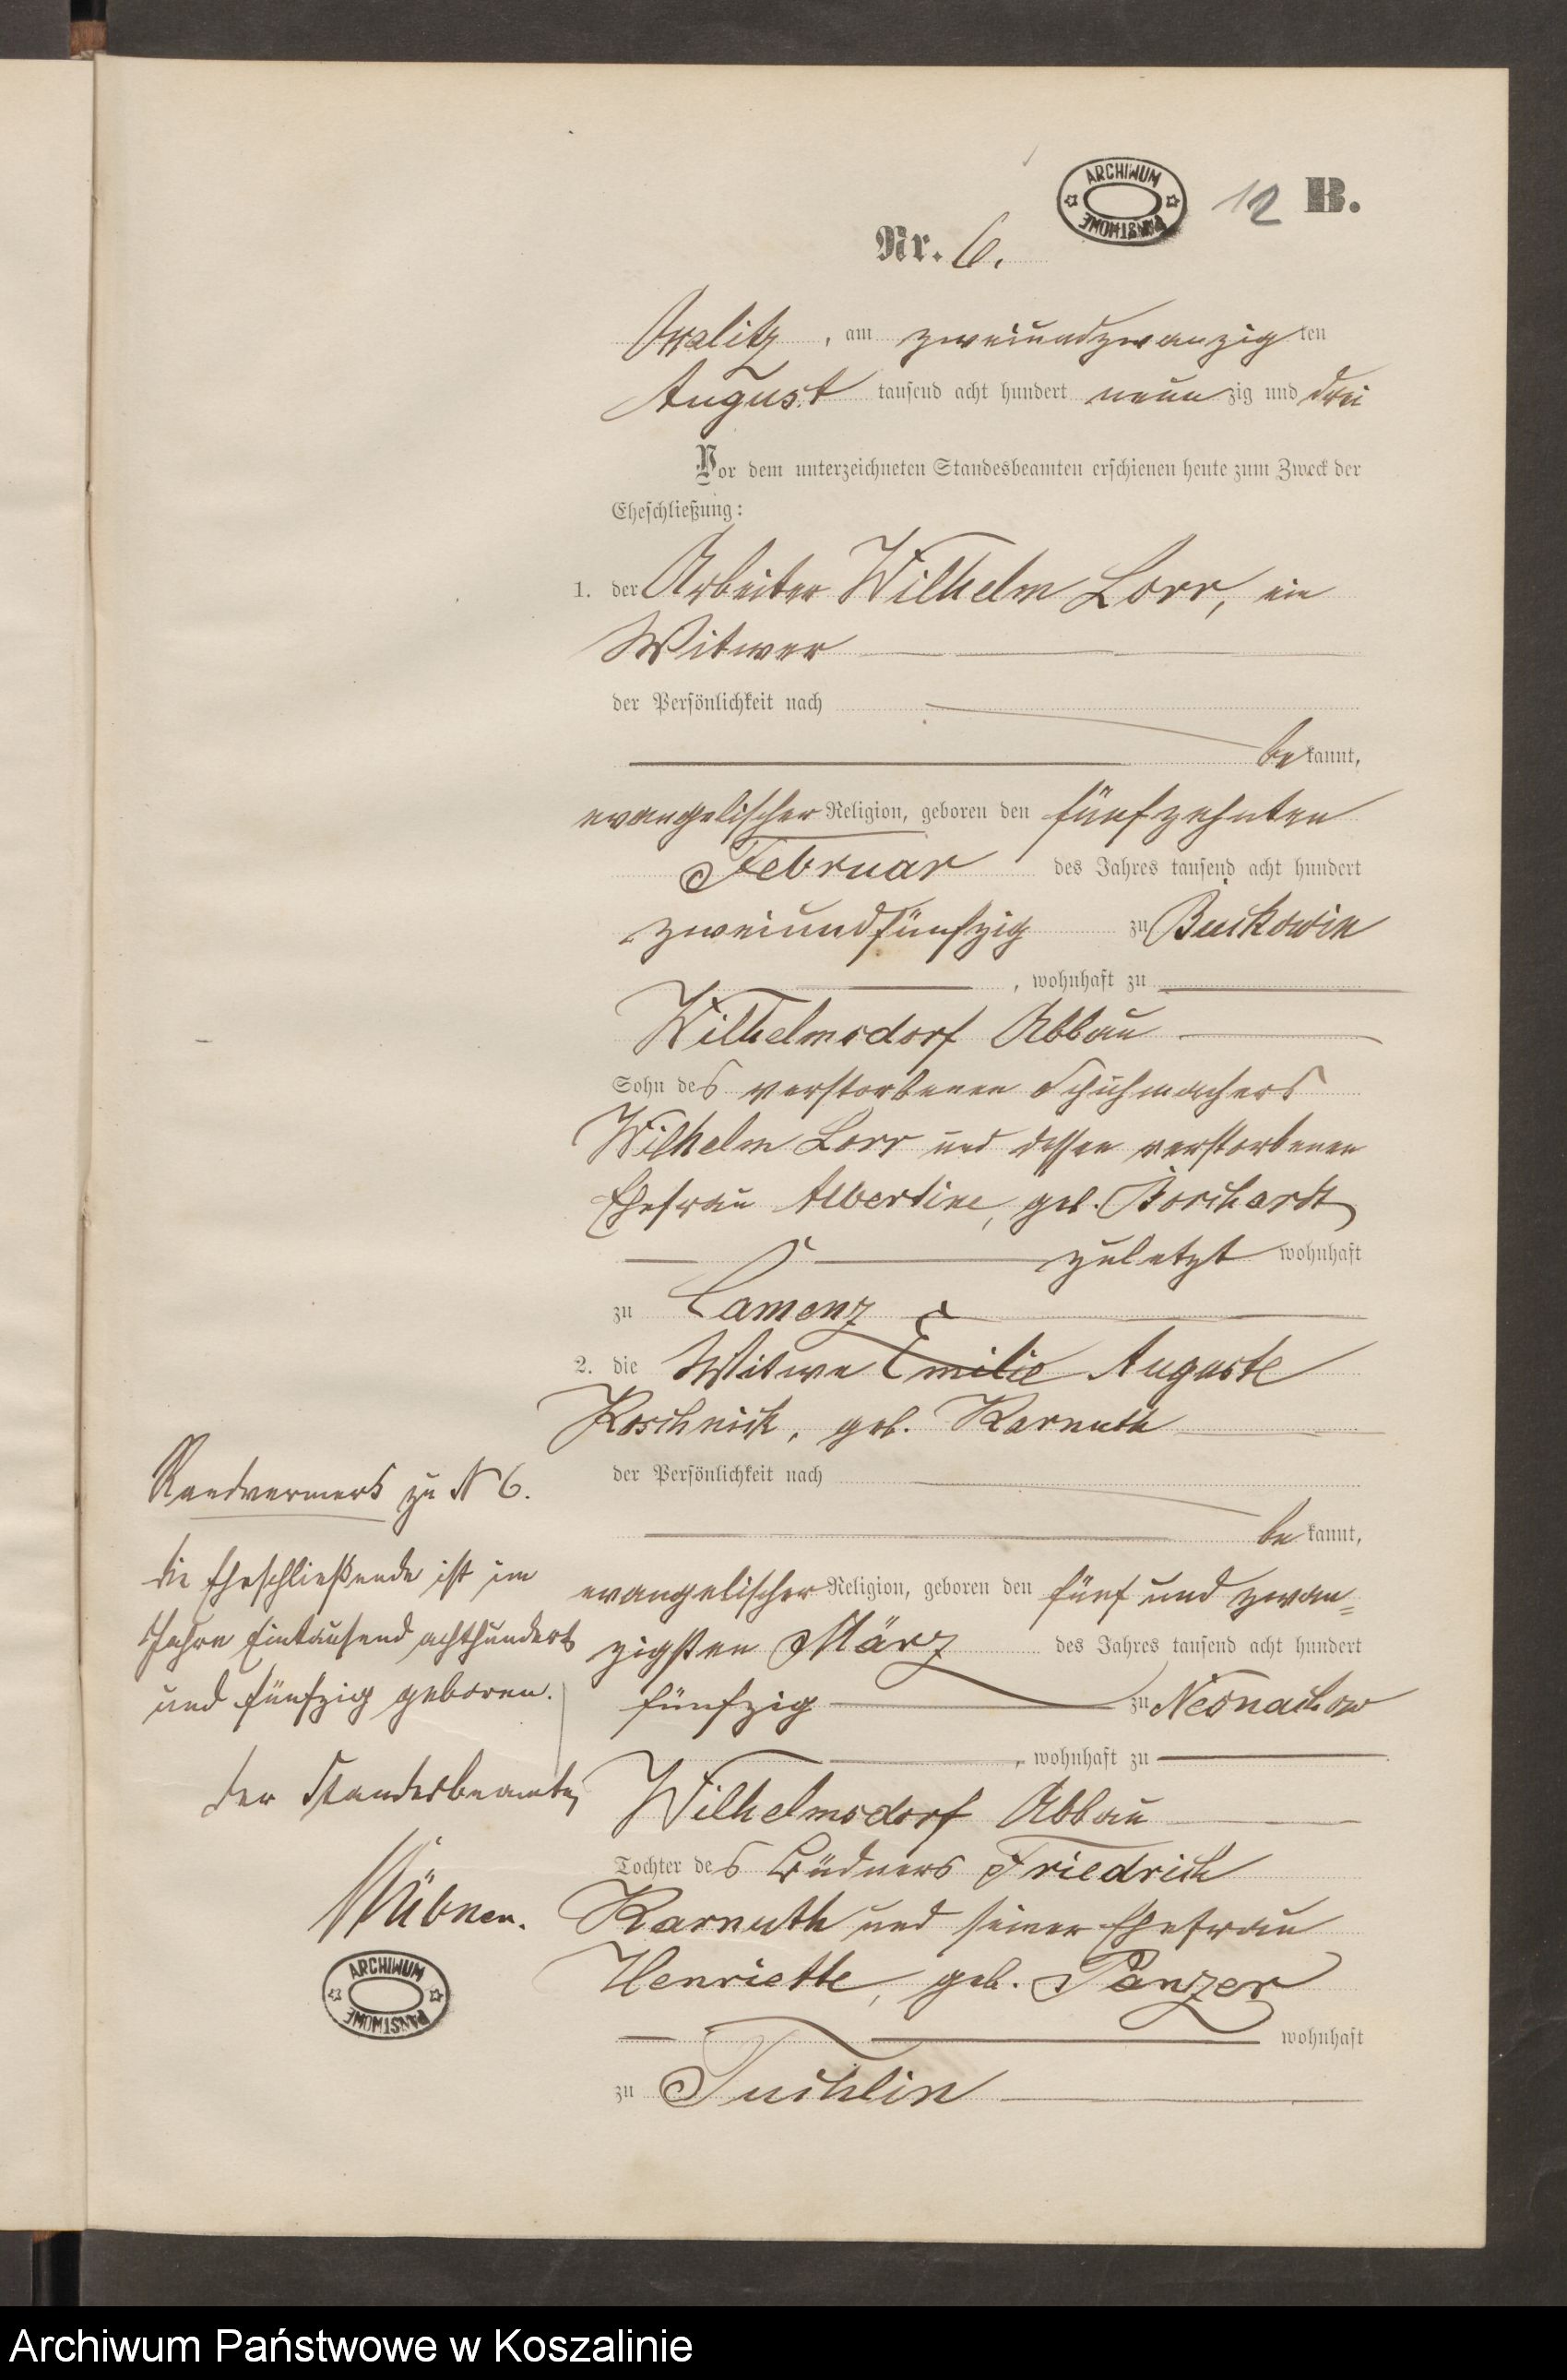 ARCHIWUM PAŃSTWOWE
12 B.
Nr. 6.
, am zweiundzwanzigten
August tausend acht hundert neunzig und drei
Vor dem unterzeichneten Standesbeamten erschienen heute zum Zweck der
Eheschließung:
1. der Arbeiter Wilhelm Lorr, ein
Witwer
der Persönlichkeit nach
bekannt,
evangelischer Religion, geboren den fünfzehnten
Februar des Jahres tausend acht hundert
zweiundfünfzig zu Buckowin
, wohnhaft zu
Wilhelmsdorf Abbau
Sohn des verstorbenen Schuhmachers
Wilhelm Lorr und dessen verstorbenen
Ehefrau Albertine, geb. Borchardt
zuletzt wohnhaft
zu Camenz
2. die Witwe Emilie Auguste
Koschnick, geb. Karnuth
der Persönlichkeit nach
bekannt,
evangelischer Religion, geboren den fünf und zwan=
zigsten März des Jahres tausend acht hundert
fünfzig zu Nesnachow
, wohnhaft zu
Wilhelmsdorf Abbau
Tochter des Büdners Friedrich
Karnuth und seiner Ehefrau
Henriette, geb. Panzer
wohnhaft
zu Tuchlin
Randvermerk zu N 6.
die Eheschließende ist im
Jahre Eintausend achthundert
und fünfzig geboren.
Der Standesbeamte,
ARCHIWUM PAŃSTWOWE
Archiwum Państwowe w Koszalinie